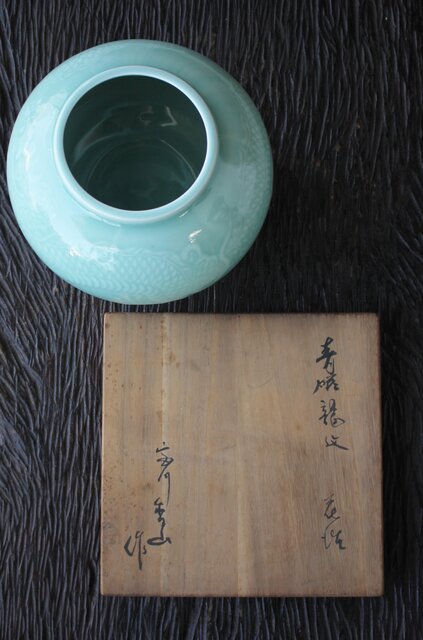 青磁龍文 花瓶
宮川香山
作